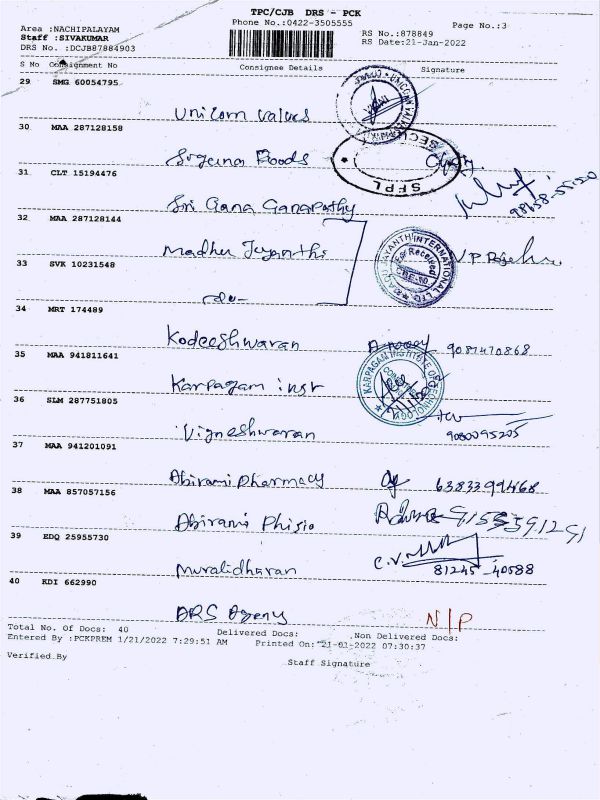 TPC/CJB DRS - PCK
Phone No.:0422-3505555
Page No.:3
Area :NACHIPALAYAM
Staff :SIVAKUMAR
DRS No. :DCJB87884903
RS No.:878849
RS Date:21-Jan-2022
S No Consignment No Consignee Details Signature
29 SMG 60054795
Unicorn Values
30 MAA 287128158
Foods
SFPL
31 CLT 15194476
Sri Gana Ganapathy
32 MAA 287128144
Madhu Jeyanthi
JAYANTHI INTERNATIONAL LTD
Received
33 SVK 10231548
-do-
34 MRT 174489
Kodeeshwaran 9087470868
35 MAA 941811641
Karpagam inst
KARPAGAM INSTITUTE OF TECHNOLOGY
36 SLM 287751805
Vigneshwaran
37 MAA 941201091
Abirami Pharmacy
38 MAA 857057156
Abirami Phisio
39 EDQ 25955730
Muralidharan 81245-40588
40 KDI 662990
DRS Agency N/P
Total No. Of Docs: 40 Delivered Docs: Non Delivered Docs:
Entered By :PCKPREM 1/21/2022 7:29:51 AM Printed On: 21-01-2022 07:30:37
Verified By Staff Signature